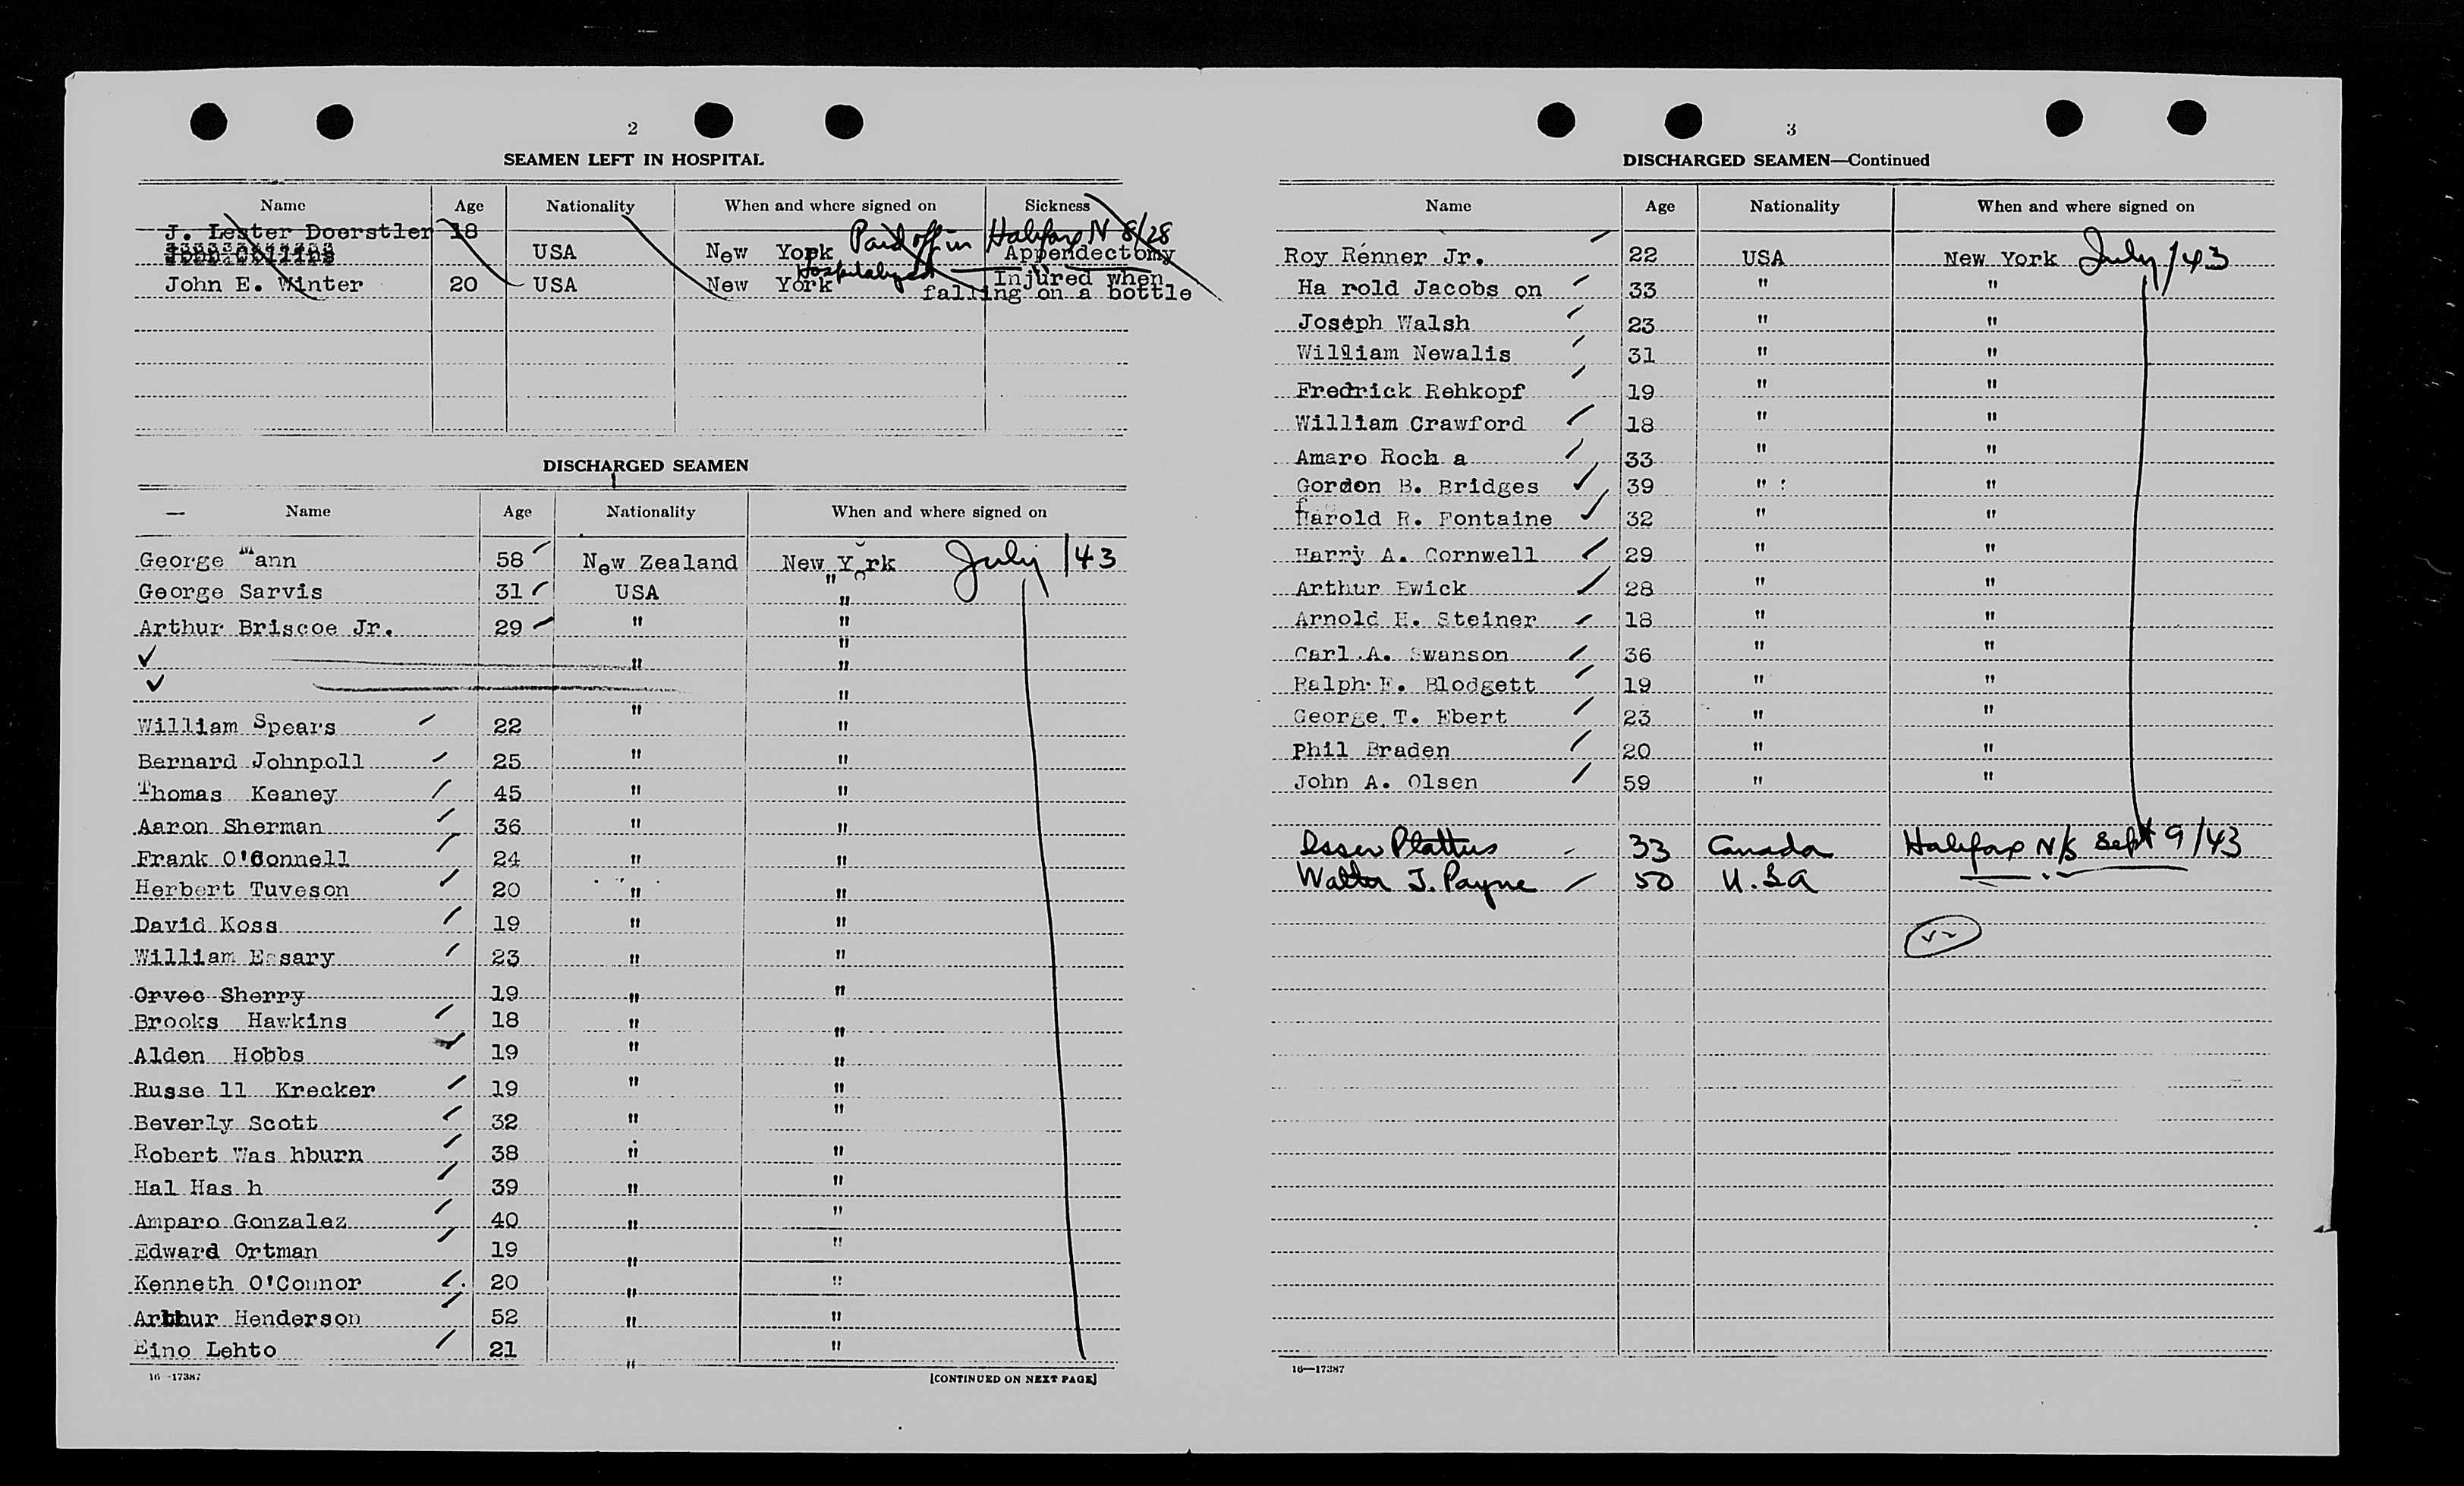 2
SEAMEN LEFT IN HOSPITAL
Name Age Nationality When and where signed on Sickness
J. Lester Doerstler 18
John Collins USA New York Paid off in Halifax N 8/28 Appendectomy
John E. Winter 20 USA New York Hospitalized Injured when
falling on a bottle
DISCHARGED SEAMEN
Name Age Nationality When and where signed on
George Mann 58 New Zealand New York July /43
George Sarvis 31 USA "
Arthur Briscoe Jr. 29 " "
"
✓ " "
✓ "
William Spears 22 " "
Bernard Johnpoll 25 " "
Thomas Keaney 45 " "
Aaron Sherman 36 " "
Frank O'Connell 24 " "
Herbert Tuveson 20 " "
David Koss 19 " "
William Essary 23 " "
Orvec Sherry 19 " "
Brooks Hawkins 18 " "
Alden Hobbs 19 " "
Russe ll Krecker 19 " "
Beverly Scott 32 " "
Robert Was hburn 38 " "
Hal Has h 39 " "
Amparo Gonzalez 40 " "
Edward Ortman 19 " "
Kenneth O'Connor 20 " "
Arthur Henderson 52 " "
Eino Lehto 21 " "
16-17387 [CONTINUED ON NEXT PAGE]
3
DISCHARGED SEAMEN—Continued
Name Age Nationality When and where signed on
Roy Renner Jr. 22 USA New York July /43
Ha rold Jacobs on 33 " "
Joseph Walsh 23 " "
William Newalis 31 " "
Fredrick Rehkopf 19 " "
William Crawford 18 " "
Amaro Roch a 33 " "
Gordon B. Bridges 39 " "
Harold R. Fontaine 32 " "
Harry A. Cornwell 29 " "
Arthur Ewick 28 " "
Arnold H. Steiner 18 " "
Carl A. Swanson 36 " "
Ralph E. Blodgett 19 " "
George T. Ebert 23 " "
Phil Braden 20 " "
John A. Olsen 59 " "
Plattus 33 Canada Halifax N/S Sept 9/43
Walter J. Payne 50 U.S.A
16—17387